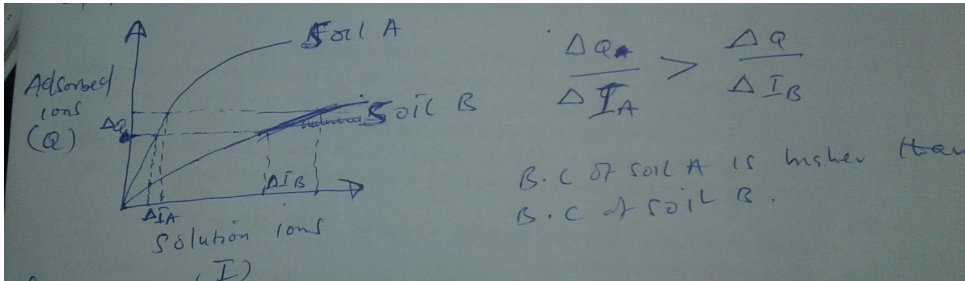 Soil A
Adsorbed
ions
(Q)
ΔQ
Soil B
ΔI_B
ΔI_A
Solution ions
(I)
ΔQ / ΔI_A > ΔQ / ΔI_B
B.C of soil A is higher than
B.C of soil B.